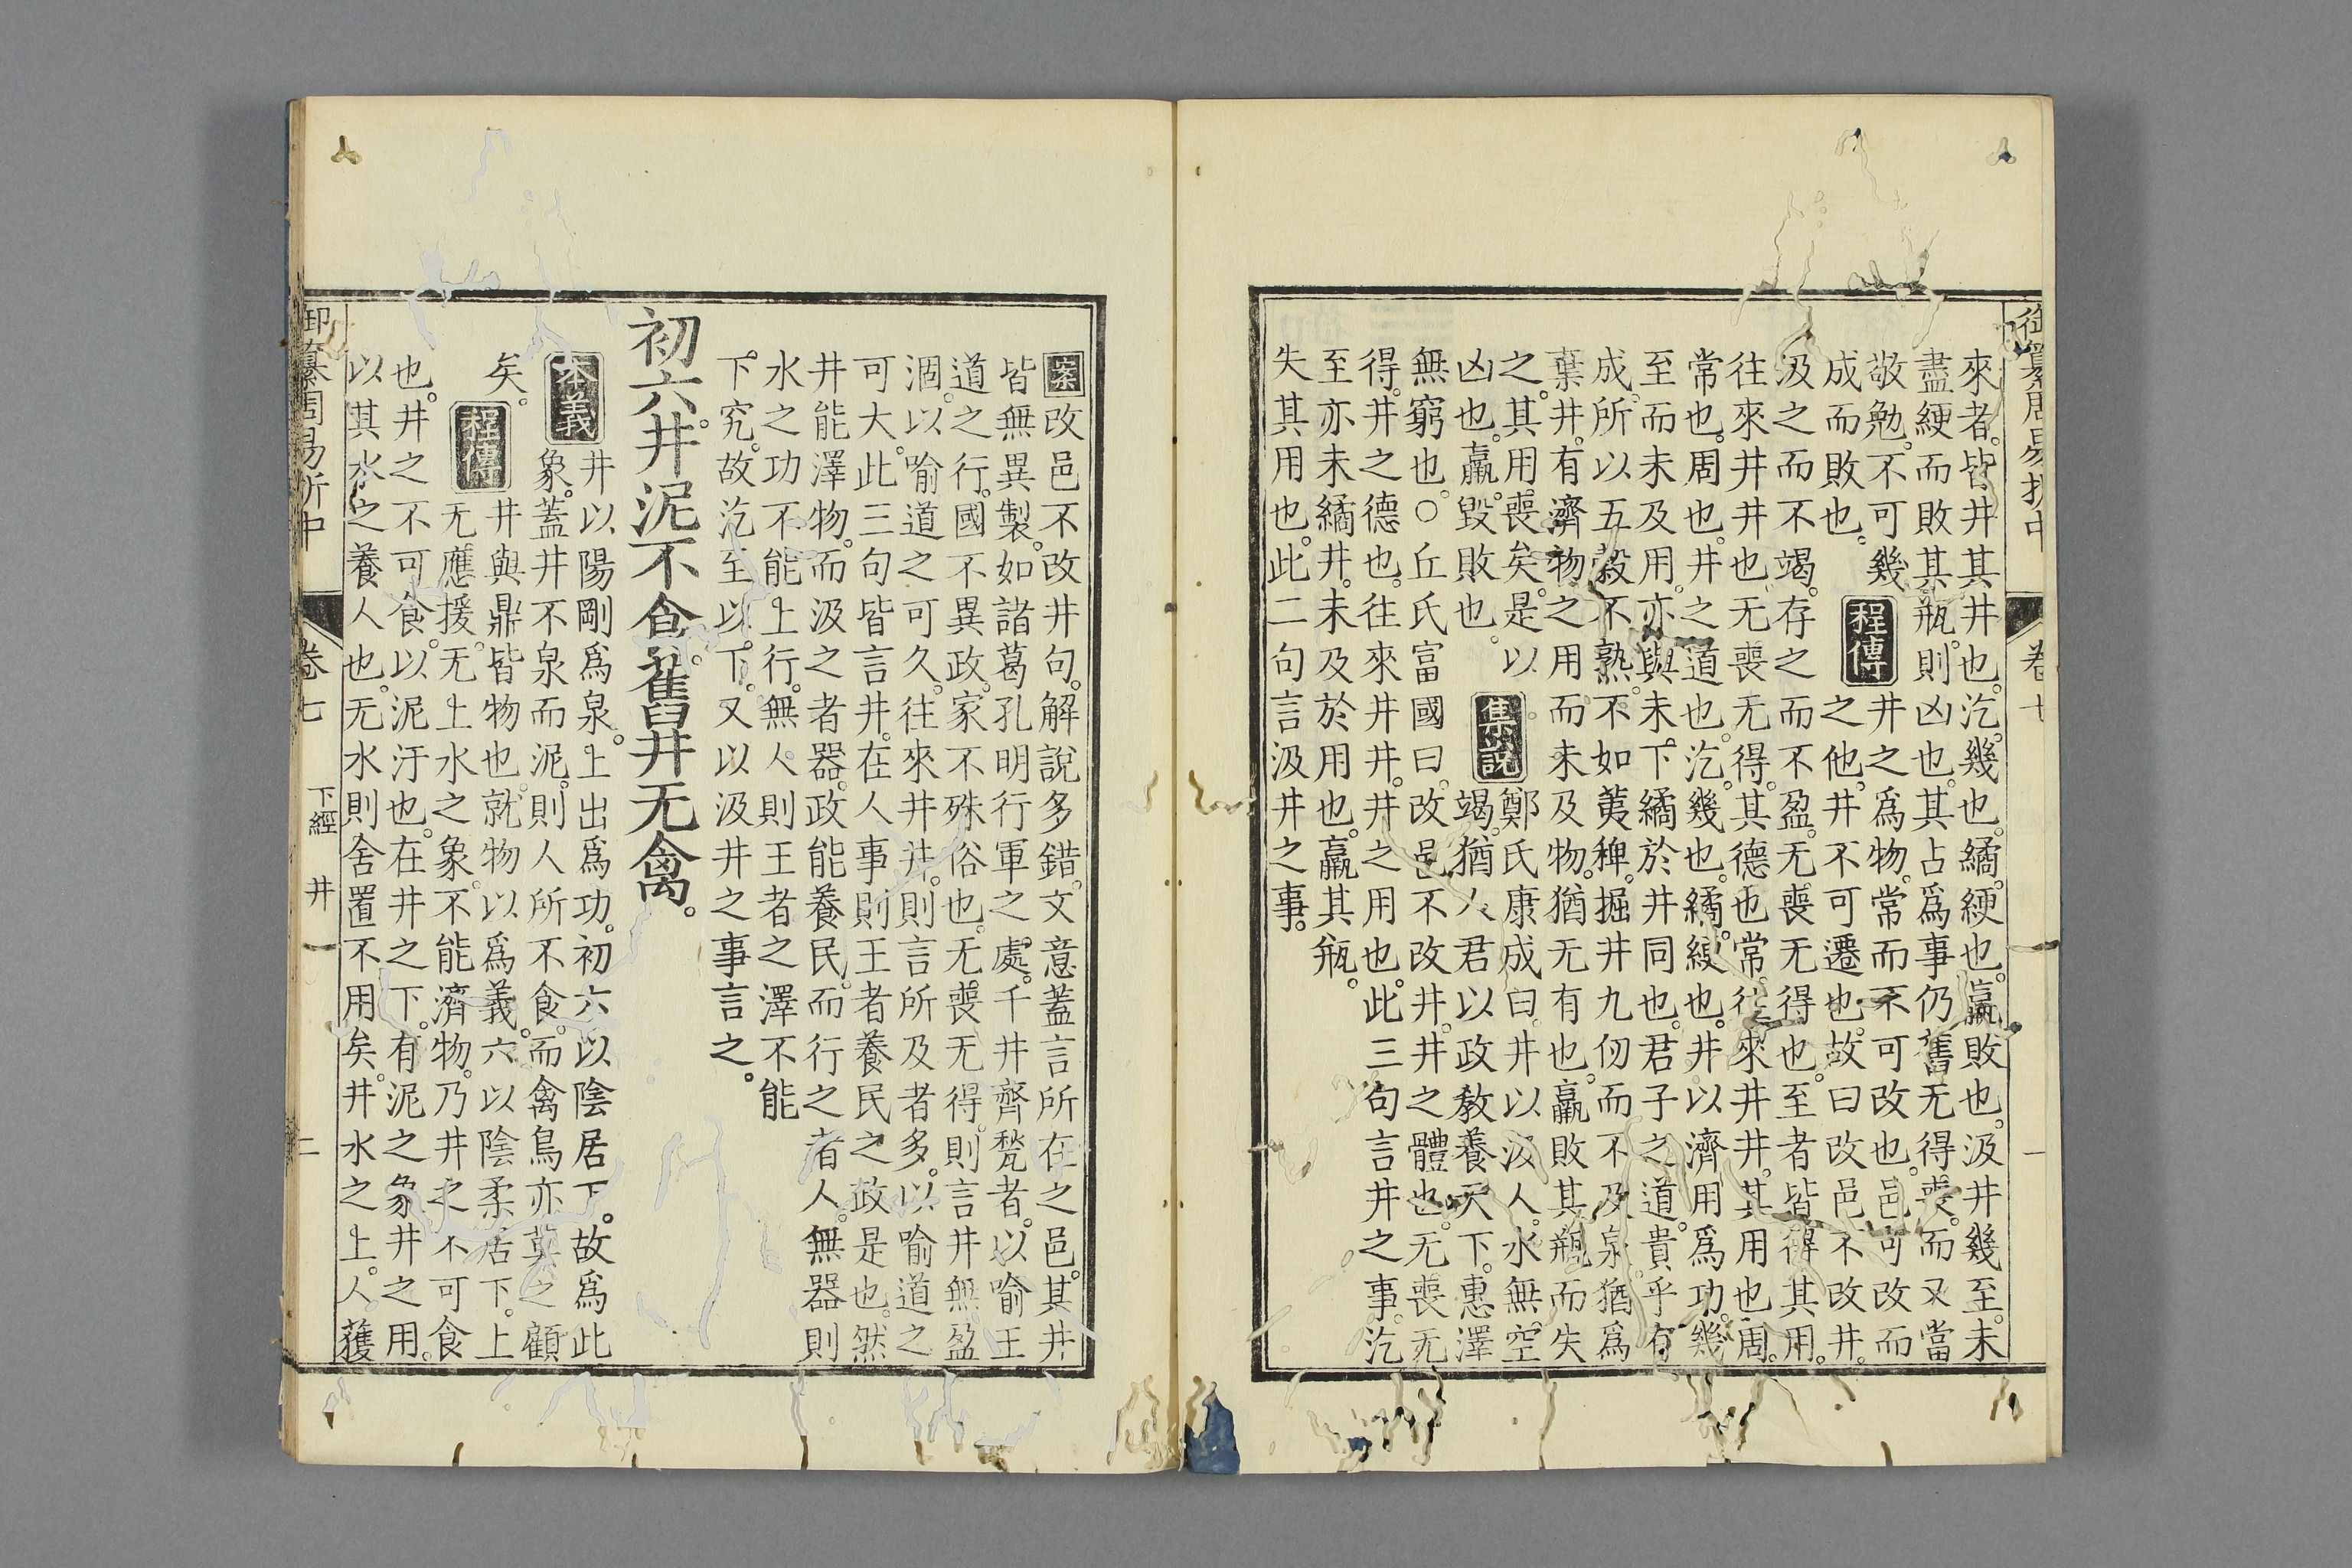 御纂周易折中
卷七
來者皆井其井也汔幾也繘綆也羸敗也汲井幾至未
盡綆而敗其瓶則凶也其占爲事仍舊无得喪而又當
敬勉不可幾
成而敗也
程傳
井之爲物常而不可改也邑可改而
之他井不可遷也故曰改邑不改井
汲之而不竭存之而不盈无喪无得也至者皆得其用
往來井井也无喪无得其德也常往來井井其用也周
常也周也井之道也汔幾也繘綆也井以濟用爲功幾
至而未及用亦與未下繘於井同也君子之道貴乎有
成所以五穀不熟不如荑稗掘井九仞而不及泉猶爲
棄井有濟物之用而未及物猶无有也羸敗其瓶而失
之其用喪矣是以
凶也羸毀敗也
集說
鄭氏康成曰井以汲人水無空
竭猶人君以政敎養天下惠澤
無窮也○丘氏富國曰改邑不改井井之體也无喪无
得井之德也往來井井井之用也此三句言井之事汔
至亦未繘井未及於用也羸其瓶
失其用也此二句言汲井之事
案改邑不改井句解說多錯文意蓋言所在之邑其井
皆無異製如諸葛孔明行軍之處千井齊甃者以喻王
道之行國不異政家不殊俗也无喪无得則言井無盈
涸以喻道之可久往來井井則言所及者多以喻道之
可大此三句皆言井在人事則王者養民之政是也然
井能澤物而汲之者器政能養民而行之者人無器則
水之功不能上行無人則王者之澤不能
下究故汔至以下又以汲井之事言之
初六井泥不食舊井无禽
本義
井以陽剛爲泉上出爲功初六以陰居下故爲此
象蓋井不泉而泥則人所不食而禽鳥亦莫之顧
矣
程傳
井與鼎皆物也就物以爲義六以陰柔居下上
无應援无上水之象不能濟物乃井之不可食
也井之不可食以泥汙也在井之下有泥之象井之用
以其水之養人也无水則舍置不用矣井水之上人獲
御纂周易折中
卷七
下經
井
二